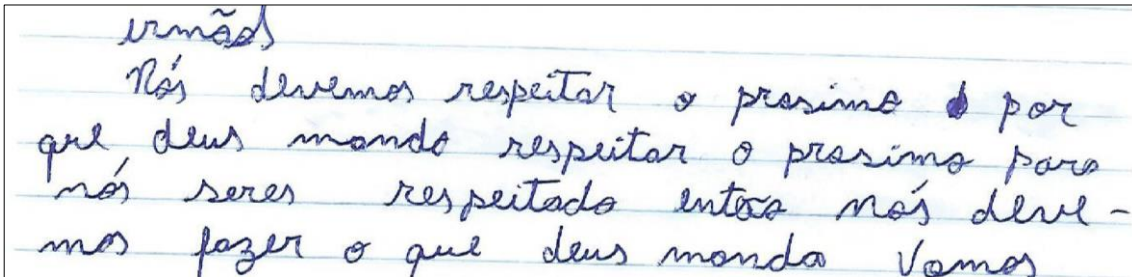 irmãos
Nós devemos respeitar o prosimo por
que deus mando respeitar o prosimo para
nós seres respeitado entoco nós deve-
mos fazer o que deus manda Vamos